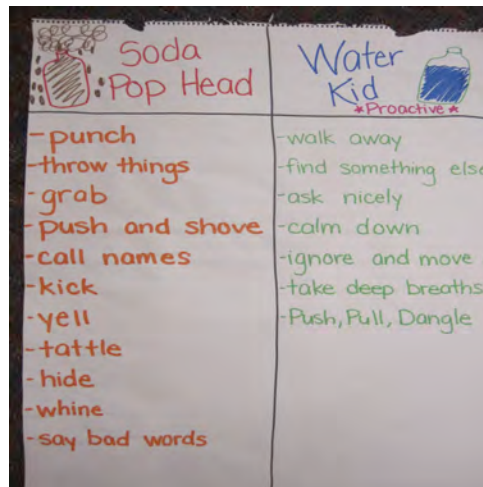 Soda
Pop Head
-punch
-throw things
-grab
-push and shove
-call names
-kick
-yell
-tattle
-hide
-whine
-say bad words
Water
Kid
*Proactive*
-walk away
-find something else
-ask nicely
-calm down
-ignore and move
-take deep breaths
-Push, Pull, Dangle